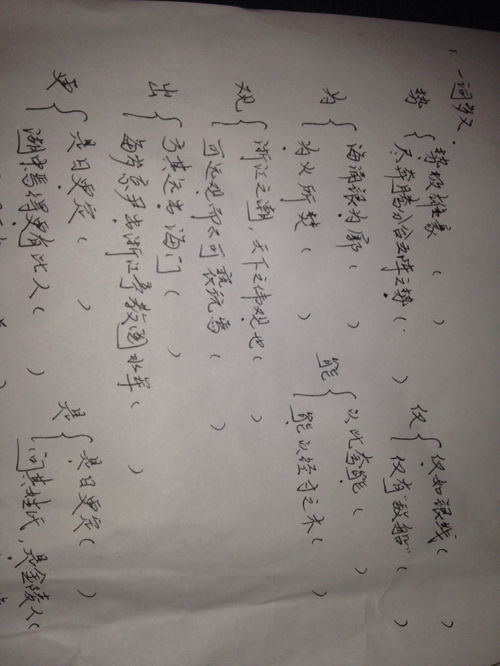 1. 一词多义.
势{势极雄豪( ) 仅{仅如银线( )
尽奔腾分合五阵之势( ) 仅有"敌船"( )
为{海涌银为郭( ) 能{以此夸能( )
为火所焚( ) 能以径寸之木( )
观{浙江之潮，天下之伟观也( )
可远观而不可亵玩焉( )
出{方其远出海门( )
每岁京尹出浙江亭教阅水军( )
更{是日更定( ) 是{是日更定( )
湖中焉得更有此人( ) 问其姓氏，是金陵人(